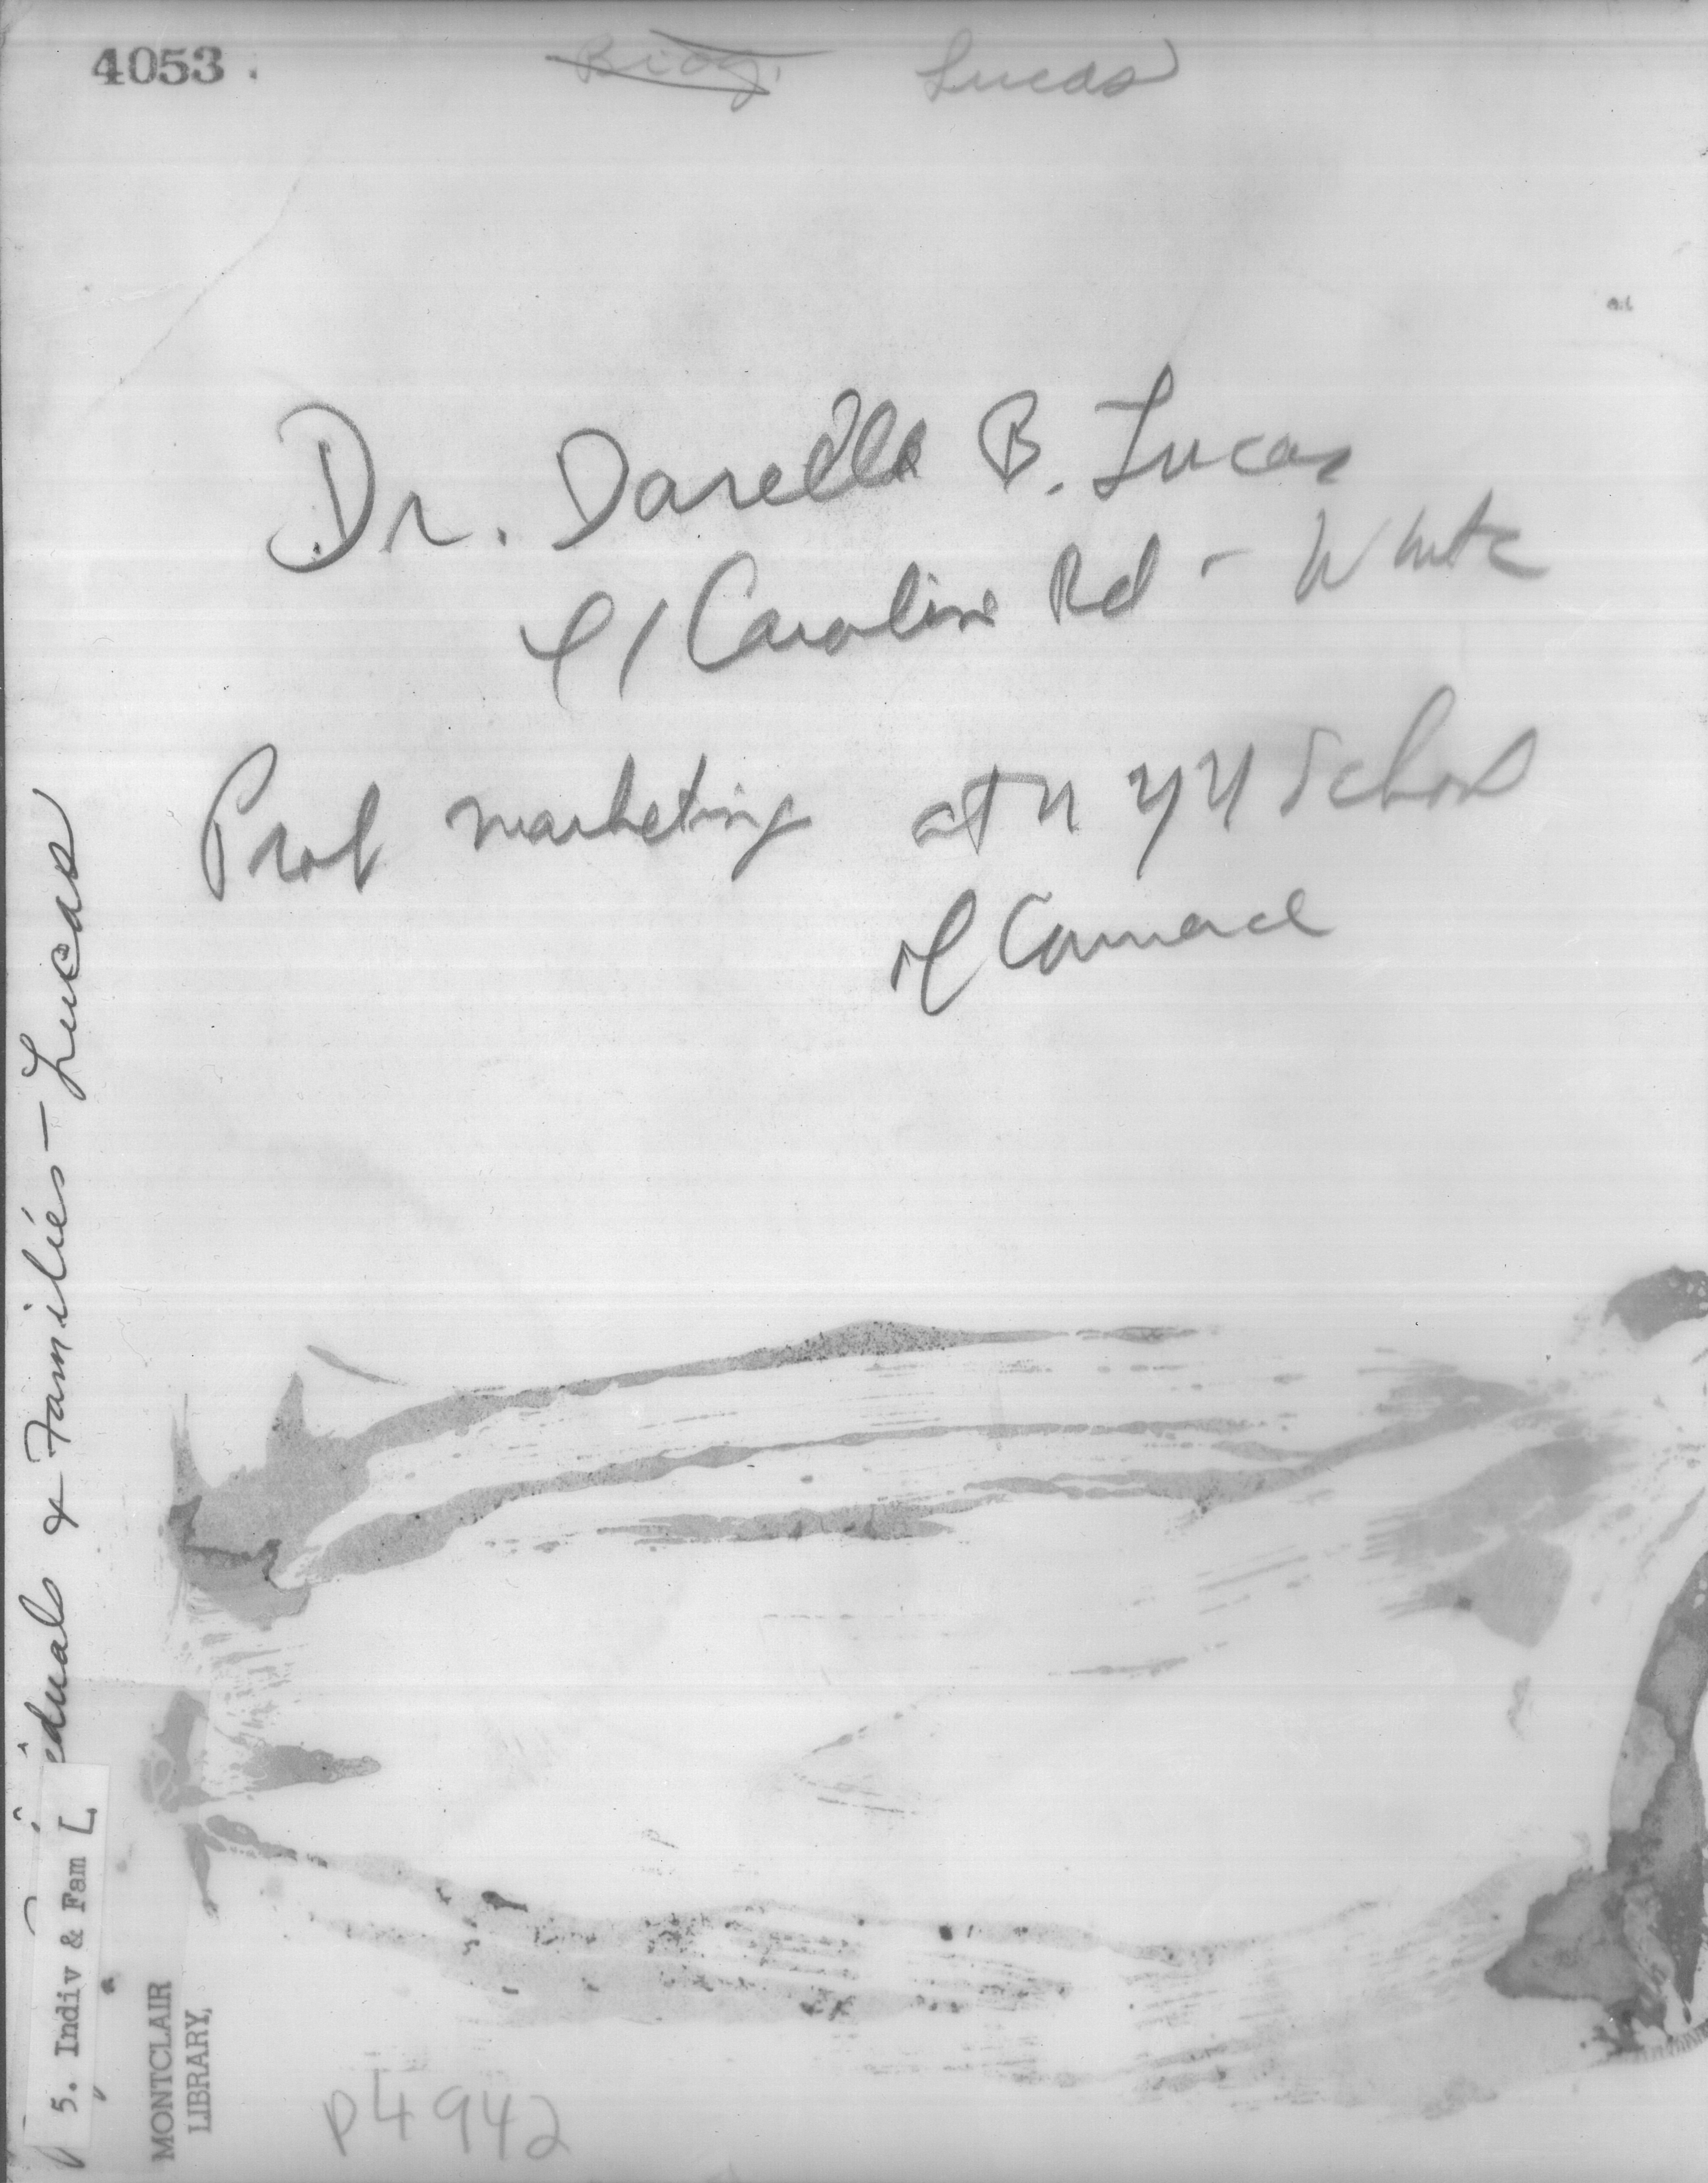 4053.
Biog. Lucas
Dr. Darelle B. Lucas
41 Caroline Rd - White
Prof marketing at N Y U School
of Commerce
eduals & Families - Lucas
5. Indiv & Fam L
MONTCLAIR
LIBRARY,
P4942